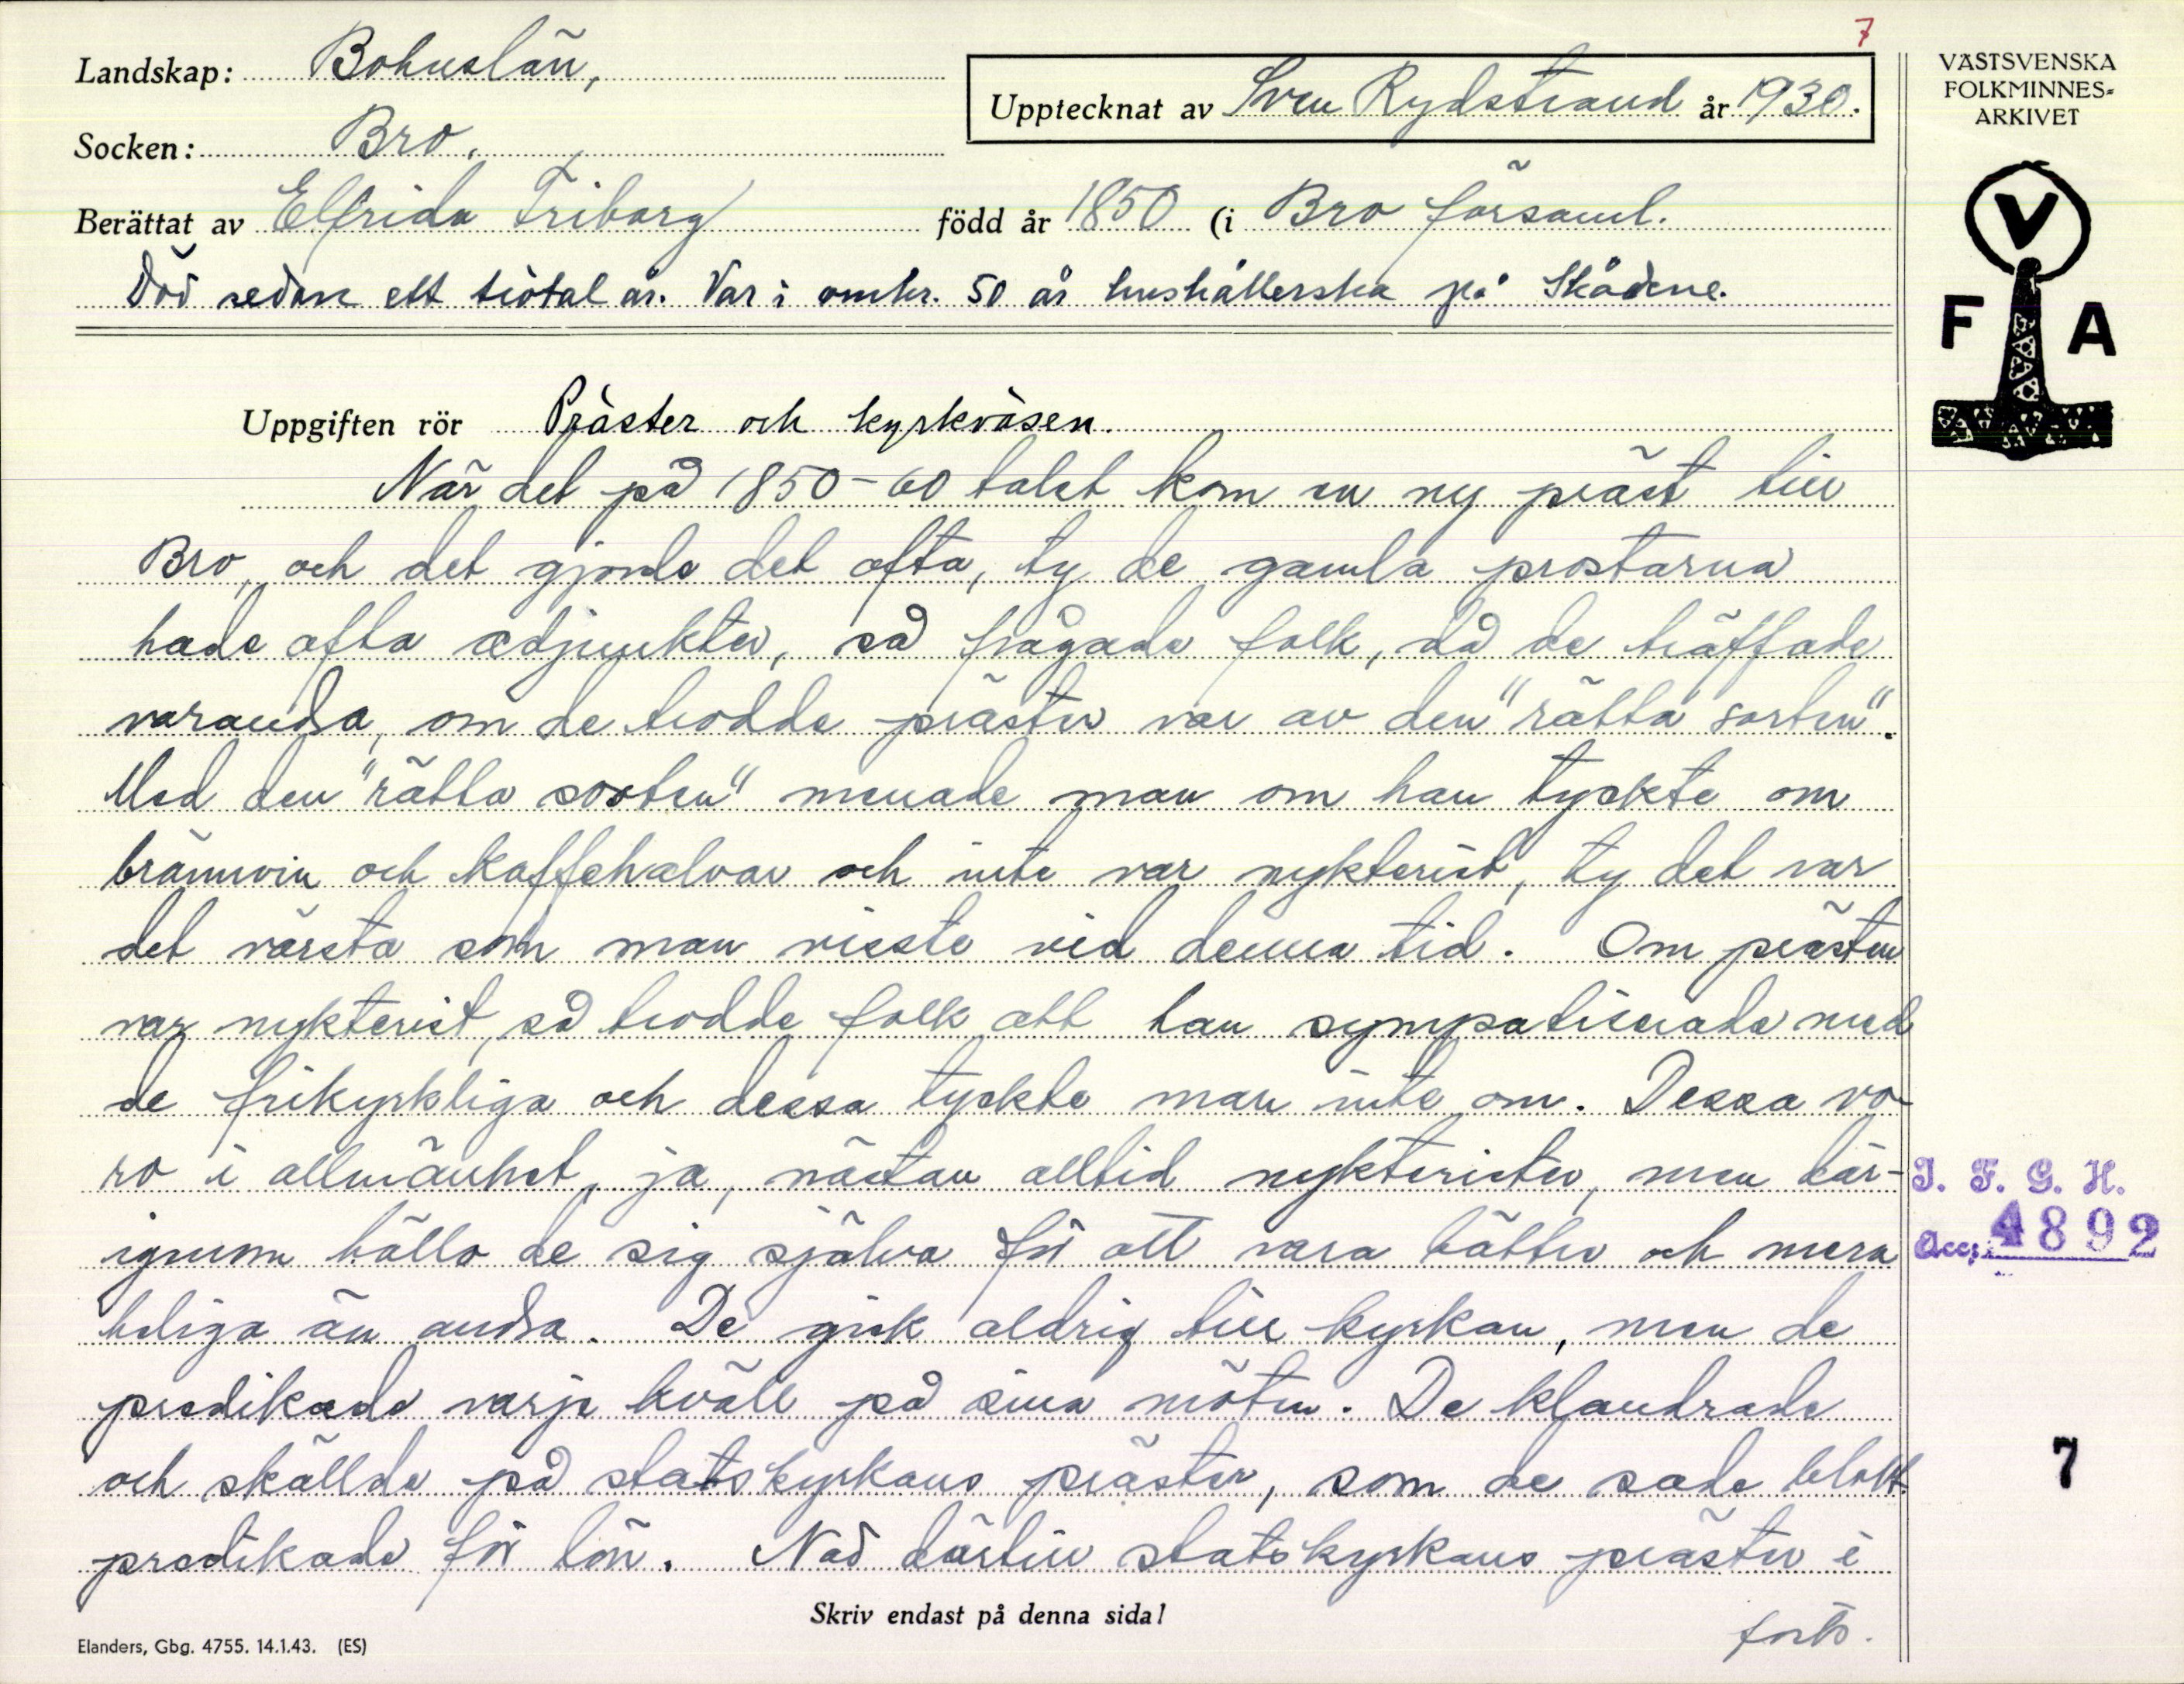 7
Landskap: Bohuslän,
Upptecknat av Sven Rydstrand år 1930.
Socken: Bro.
Berättat av Elfrida Friberg född år 1850 (i Bro församl.
Död sedan ett tiotal år. Var i omkr. 50 år hushållerska på Skådene.
VÄSTSVENSKA
FOLKMINNES-
ARKIVET
V
F A
Uppgiften rör Präster och kyrkväsen.
När det på 1850-60 talet kom en ny präst till
Bro, och det gjorde det ofta, ty de gamla prostarna
hade ofta adjunkter, så frågade folk, då de träffade
varandra, om de trodde prästen var av den "rätta sorten".
Med den "rätta sorten" menade man om han tyckte om
brännvin och kaffehalvor och inte var nykterist, ty det var
det värsta som man visste vid denna tid. Om prästen
var nykterist, så trodde folk att han sympatiserade med
de frikyrkliga och dessa tyckte man inte om. Dessa vo-
ro i allmänhet, ja, nästan alltid nykterister, men där-
igenom höllo de sig själva för att vara bättre och mera
heliga än andra. De gick aldrig till kyrkan, men de
predikade varje kväll på sina möten. De klandrade
och skällde på statskyrkans präster, som de sade blott
predikade för lön. Nad därtill statskyrkans präster i
forts.
I. F. G. H.
Acc: 4892
7
Skriv endast på denna sida!
Elanders, Gbg. 4755. 14.1.43. (ES)